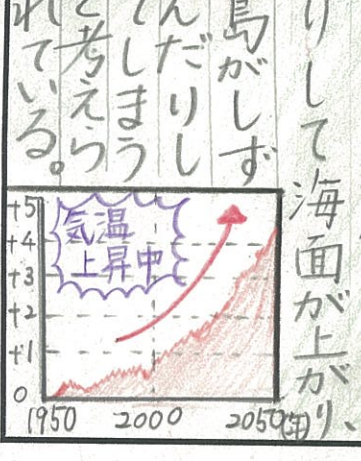 りして海面が上がり、
島がしず
んだりし
てしまう
と考えら
れている。
気温
上昇中
+5
+4
+3
+2
+1
0
1950 2000 2050(年)